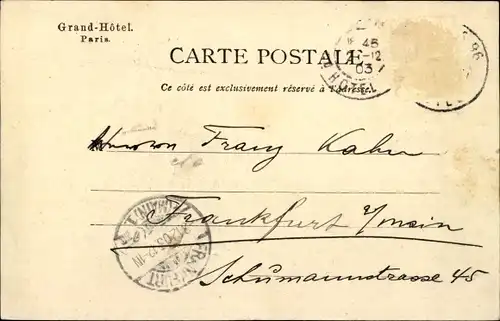 Grand-Hôtel.
Paris.
CARTE POSTALE
Ce côté est exclusivement réservé à l'adresse.
Herrn Franz Kahn
Frankfurt a/main
Schumannstrasse 45
45
12
03
HOTEL
96
FRANKFURT
(MAIN)